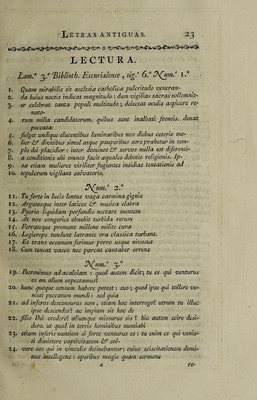 LETRAS ANTIGUAS. 23
LECTURA.
Lam.ª 3.ª Biblioth. Escurialense, sig.ª 6.ª Num.º 1.º
1. Quam mirabilis sit æcclesia catholica pulcritudo veneran-
2. da huius noctis indicat magnitudo: dum vigilias sacras sollemnit-
3. er celebrat tanta populi multitudo; delectat oculis aspicere re-
nate-
4. rum milia candidatorum. quibus sunt inalbati fronteis. donat
peccata:
5. fulget undique elucentibus luminaribus nox diebus ceteris me-
6. lior & divitibus simul atque pauperibus sors prabetur in tem-
7. plo dei placidior: inter dominos & servos nulla est diferentia
8. a conditionis ubi omnes facit aquales debetio religionis. Ip-
9. sa etiam mulieres viriliter fugientes insidias tentationis ad
10. sepulcrum vigilant salvatoris.
Num.º 2.º
11. Tu forte in lucis lentus vaga carmina gignis
12. Argutosque inter latices & musica flabra
13. Pyeriis liquidam perfundis nectare mentem
14. At nos congeries obnubit turbida rerum
15. Ferrateque premunt milleno milite cura
16. Legicrepe tundunt latrante ora classica turbant.
17. Et trans oceanum ferimur porro usque nivosus
18. Cum teneat vasco nec parcat cantaber errens
Num.º 3.º
19. Iheronimus ad acalciam: quod autem dicit; tu es qui venturus
es an alium expectamus?
20. hunc quoque sensum habere potest: suo; quod ipse qui tollere ve-
nisti peccatum mundi: sed quia
21. ad inferos descensurus sum, etiam hoc interrogo? utrum tu illuc
ipse descendes? ac impium sit hoc de
22. filio Dei credere? aliumque missurus sis? hic autem scire desi-
dero. ut quod in terris hominibus nuntiabi
23. etiam inferis nuntiem si forte venturus es: tu enim es qui venis-
ti dimittere captivitatem & sol-
24. vere eos qui in vinculis detinebantur: cuius sciscitationem domi-
nus intellegens: operibus magis quam sermone
re-